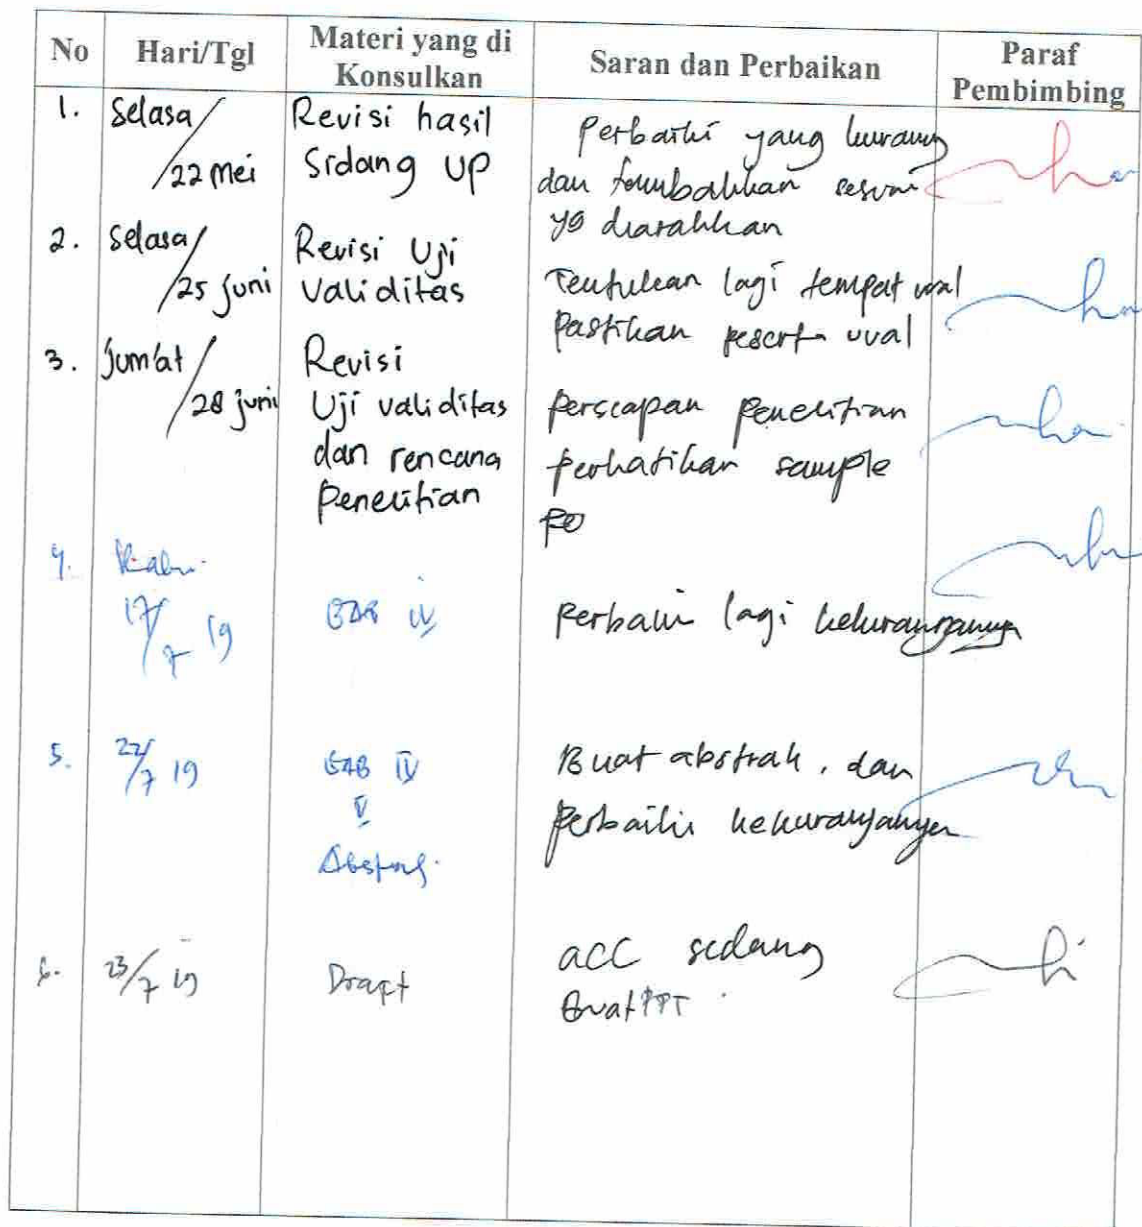 No Hari/Tgl Materi yang di Konsulkan Saran dan Perbaikan Paraf Pembimbing
1. Selasa/ 22 mei
Revisi hasil
Sidang UP
Perbaiki yang kurang
dan tambahkan sesuai
yg diarahkan
2. Selasa/ 25 juni
Revisi Uji
validitas
Tentukan lagi tempat
Pastikan peserta
3. jum'at/ 28 juni
Revisi
Uji validitas
dan rencana
penelitian
Persiapan penelitian
perhatikan sample
4. Rabu
17/7 19
BAB IV
Perbaiki lagi kekurangannya
5. 22/7 19
BAB IV
V
Abstrak.
Buat abstrak, dan
perbaiki kekurangannya
6. 23/7 19
Draft
acc sidang
Buat PPT